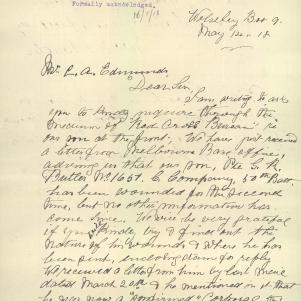 Formally acknowledged.
16/5/18
Wolseley Box 9.
May 12. 18
Mr L. A. Edmunds
Dear Sir,
I am writing to ask
you to kindly inquire through the
medium of "Red Cross Bureau" re
our son at the front. We have just received
a letter from Melbourne Base office,
advising us that our son, Pte G. R.
Butler No 1657. C Company, 50th Batt.
has been wounded for the second
time, but no other information has
come since. We will be very grateful
if you kindly try & find out the
nature of his wounds & where he has
been sent, enclosing stamp for reply
We received a letter from him by last mail
dated March 20th & he mentioned in it that
he was now a "confirmed" Corporal the